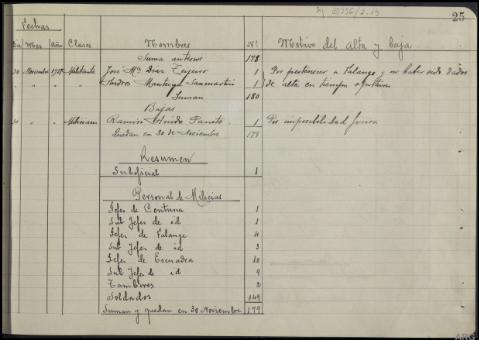 25
Fechas
Dia Mes Año Clases Nombres Nº Motivo del alta y baja
Suma anterior 178
30 Noviembre Militante José Mª Diaz 1 Por pertenecer a Falange y no haber sido dados
" " " 1 de alta en tiempo oportuno
Suman 180
Bajas
30 " " Ramón 1 Por imposibilidad física
Quedan en 30 de Noviembre 179
Resumen
Suboficial 1
Personal de Milicias
Jefes de Centuria 1
Sub Jefes de id 1
Jefes de Falange 4
Sub Jefes de id 3
Jefes de Escuadra 10
Sub Jefes de id 9
Tambores 2
Soldados 149
Suman y quedan en 30 Noviembre 179